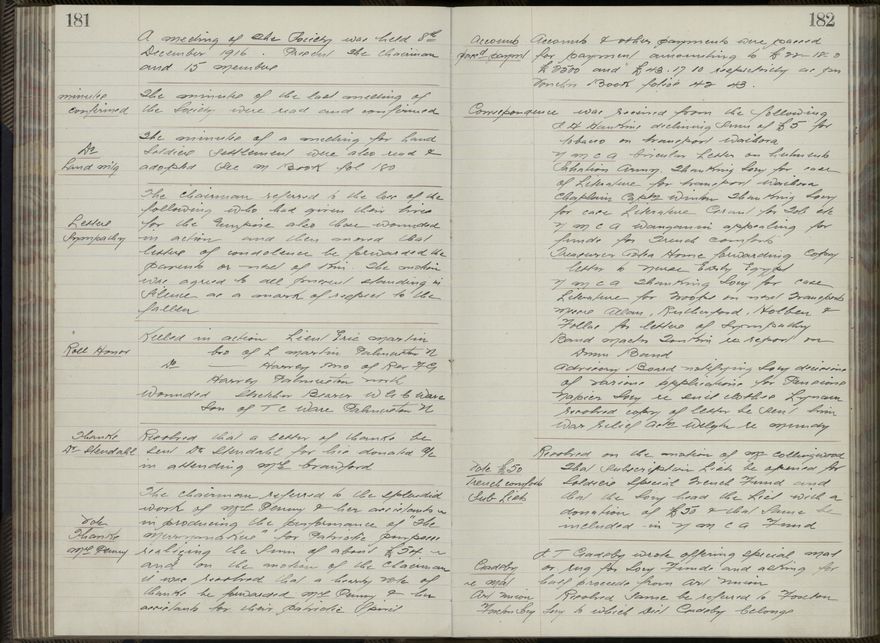 181
A meeting of the Society was held 8th
December 1916. Present The Chairman
and 15 members
minutes
confirmed
The minutes of the last meeting of
the Society were read and confirmed
Do
Land mtg
The minutes of a meeting for Land
Soldiers Settlement were also read &
adopted See M Book fol 180
Letters
Sympathy
The Chairman referred to the loss of the
following who had given their lives
for the Empire also those wounded
in action and then moved that
letters of condolence be forwarded the
parents or next of kin. The motion
was agreed to all present standing in
silence as a mark of respect to the
fallen
Roll Honor
Killed in action Lieut Eric Martin
bro of L Martin Palmerston N
Do Harvey bro of Rev F G
Harvey Palmerston North
Wounded Stretcher Bearer W G C Ware
Son of T C Ware Palmerston N
Thanks
Dr Stendahl
Resolved that a letter of thanks be
sent Dr Stendahl for his donated a/c
in attending Mrs Crawford
Vote
Thanks
Mrs Penny
The Chairman referred to the splendid
work of Mrs Penny & her assistants
in producing the performance of "The
for Patriotic purposes
realising the sum of about £54
and on the motion of the Chairman
it was resolved that a hearty vote of
thanks be forwarded Mrs Penny & her
assistants for their patriotic spirit
182
Accounts
pass'd payment
Accounts & other payments were passed
for payment amounting to
and £43.17.10 respectively as per
Book folios 42 43.
Correspondence was received from the following
Hawkins declining sum of £5 for
tobacco on transport
Y M C A Circular Letter on
Salvation Army thanking Socy for case
of Literature for transport
Chaplain Capt Winton Thanking Socy
for case Literature
Y M C A Wanganui appealing for
funds for Trench comforts
Treasurer Home forwarding copy
letter to Nurse Early Egypt
Y M C A Thanking Socy for case
Literature for troops on next transport
Messrs Allan, Rutherford, Holben &
for letters of sympathy
Band Master re report on
Band
Advisory Board notifying Socy decisions
of various applications for Pensions
Napier Socy re
resolved copy of letter be sent him
War Relief Assn Welgtn re Mundy
Vote £50
Trench comforts
Sub Lists
Resolved on the motion of Mr Collingwood
that subscription lists be opened for
Soldiers Special Trench Fund and
that the Socy head the List with a
donation of £50 & that same be
included in Y M C A Fund
re Mat
Art Union
Foxton Socy
wrote offering special mat
or rug for Socy Funds and asking for
half proceeds from Art Union
Resolved same be referred to Foxton
Socy to which Dist belongs